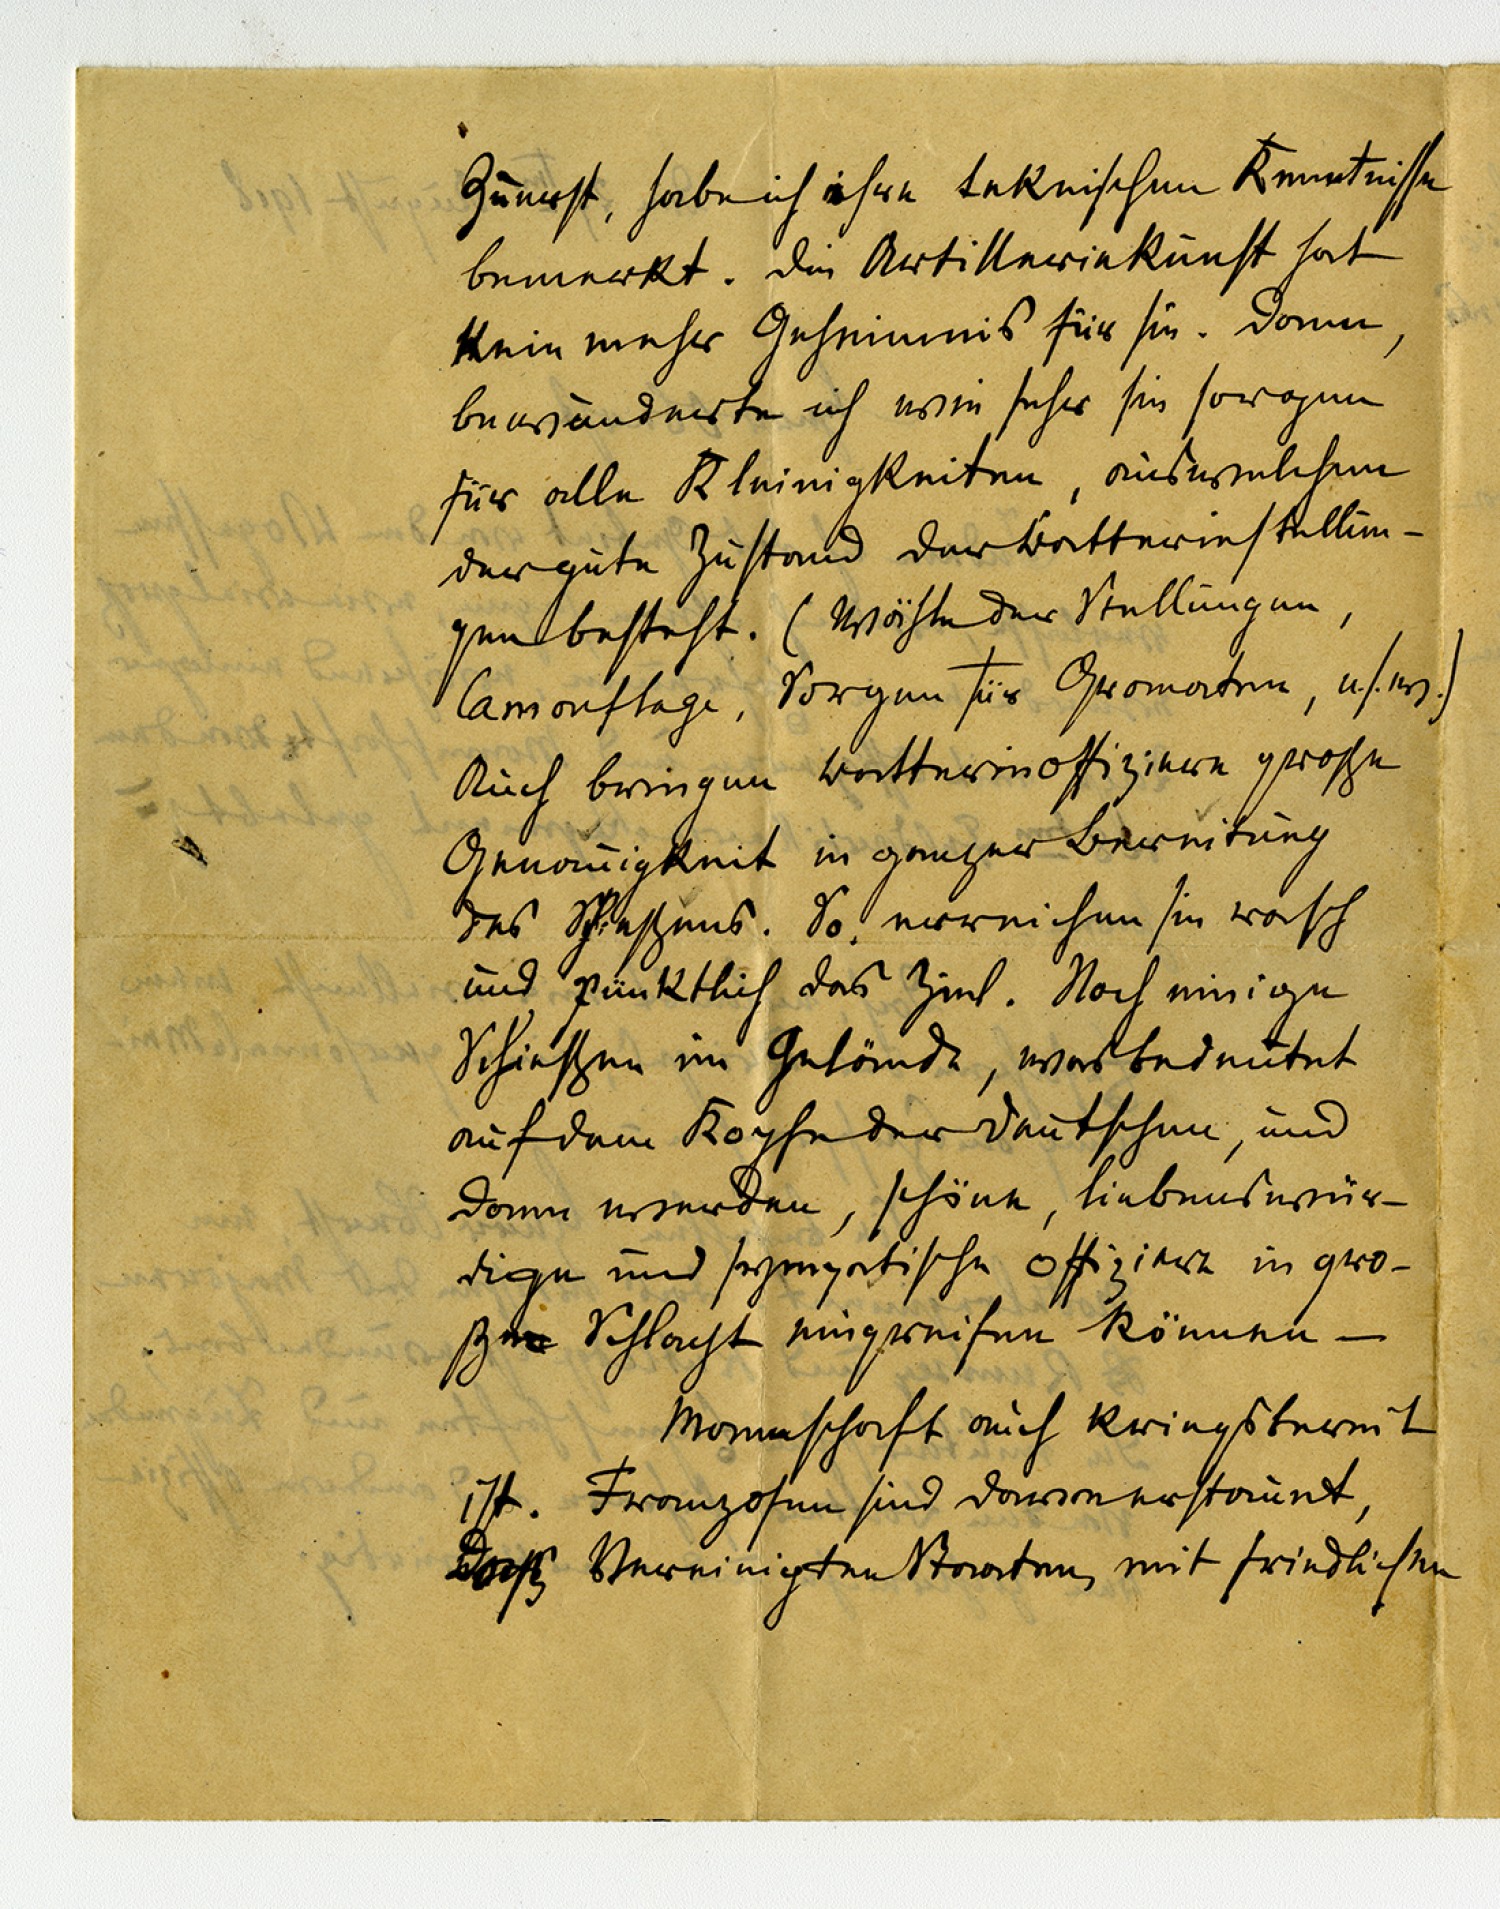 Zuerst, habe ich ihre teknischen Kenntnisse
bemerkt. Die Artilleriekunst hat
kein meher Geheimnis für sie. Dann,
bewunderte ich wie seher sie sorgen
für alle Kleinigkeiten, auswelchem
der gute Zustand der Batteriestellun-
gen besteht. (Wähle der Stellungen,
Camouflage, Sorgen für Granaten, u.s.w.)
Auch bringen Batterieoffiziere große
Genauigkeit in ganzer Bereitung
des Schießens. So, erreichen sie rasch
und pünktlich das Ziel. Noch einige
Schießen im Gelände, was bedeutet
auf dem Kopfe der Deutschen, und
dann werden, schöne, liebenswür-
dige und sympatische Offiziere in gro-
ße Schlacht eingreifen können —
Mannschaft auch kriegsbereit
ist. Franzosen sind daran erstaunt,
Daß Vereinigten Staaten, mit friedlichen